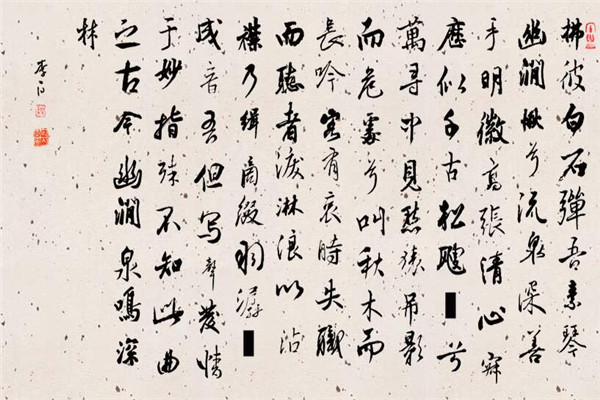 拂彼白石彈吾素琴
幽澗愀兮流泉深善
手明徽高張清心寂
歷似千古松飕兮
萬尋中見愁猿吊影
而危處兮叫秋木而
長吟客有哀時失職
而聽者淚淋浪以沾
襟乃緝商綴羽潺
成音吾但寫聲發情
于妙指殊不知此曲
之古今幽澗泉鳴深
林
李白